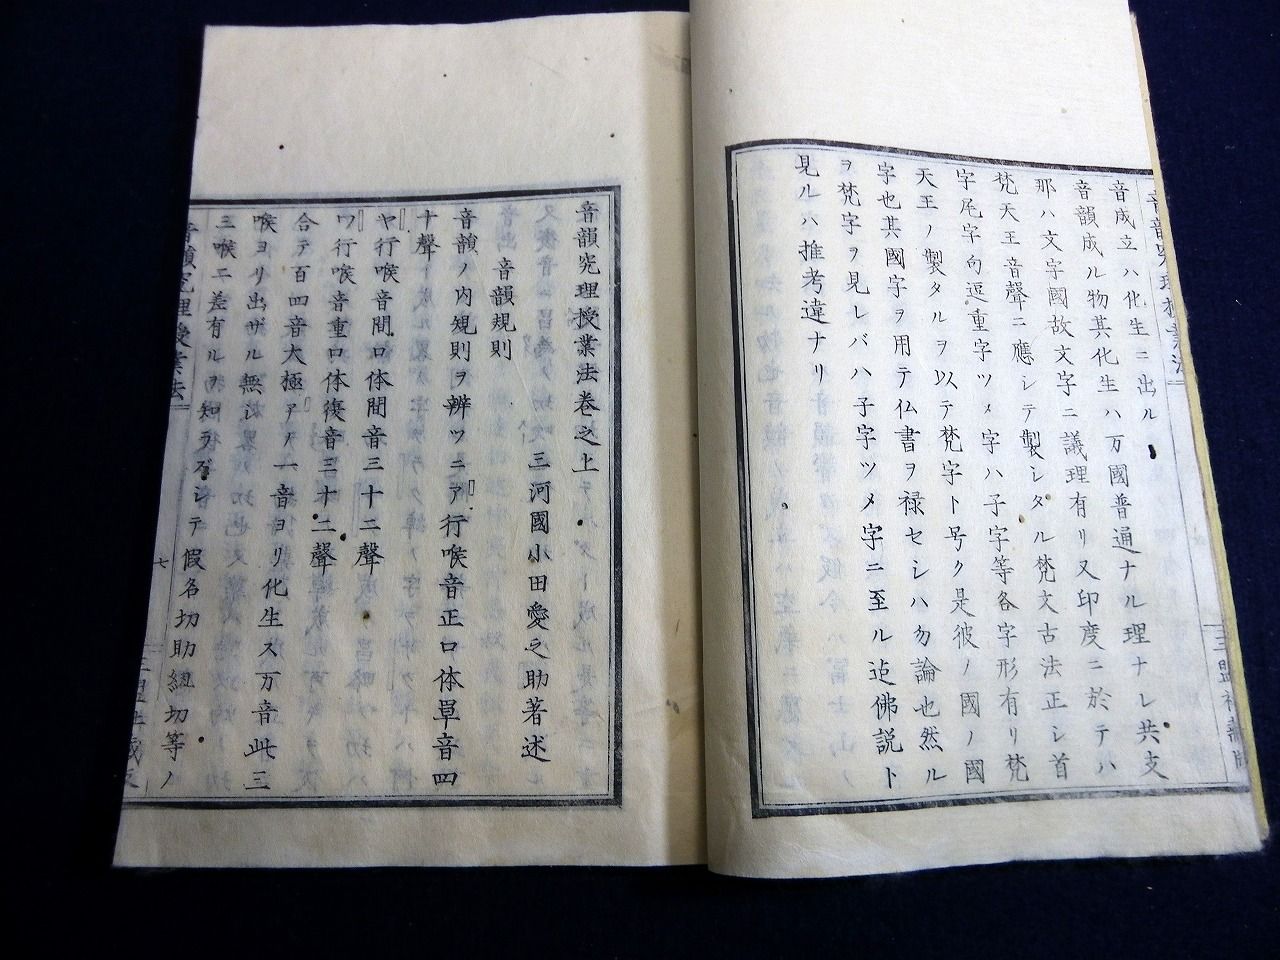 音韻究理授業法
音成立ハ化生ニ出ル
音韻成ル物其化生ハ万國普通ナル理ナレ共支
那ハ文字國故文字ニ議理有リ又印度ニ於テハ
梵天王音聲ニ應シテ製シタル梵文古法正シ首
字尾字向逗重字ツメ字ハ子字等各字形有リ梵
天王ノ製タルヲ以テ梵字ト号ク是彼ノ國ノ國
字也其國字ヲ用テ仏書ヲ禄セシハ勿論也然ル
ヲ梵字ヲ見レバハ子字ツメ字ニ至ル迠佛説ト
見ルハ推考違ナリ
三盟社蔵版
音韻究理授業法巻之上
三河國小田愛之助著述
音韻規則
音韻ノ内規則ヲ辨ツニア行喉音正口体単音四
十聲
ヤ行喉音間口体間音三十二聲
ワ行喉音重口体復音三十二聲
合テ百四音大極アノ一音ヨリ化生ス万音此三
喉ヨリ出ザル無シ
三喉ニ差有ルヲ知ラズシテ假名切助紐切等ノ
音韻究理授業法
七